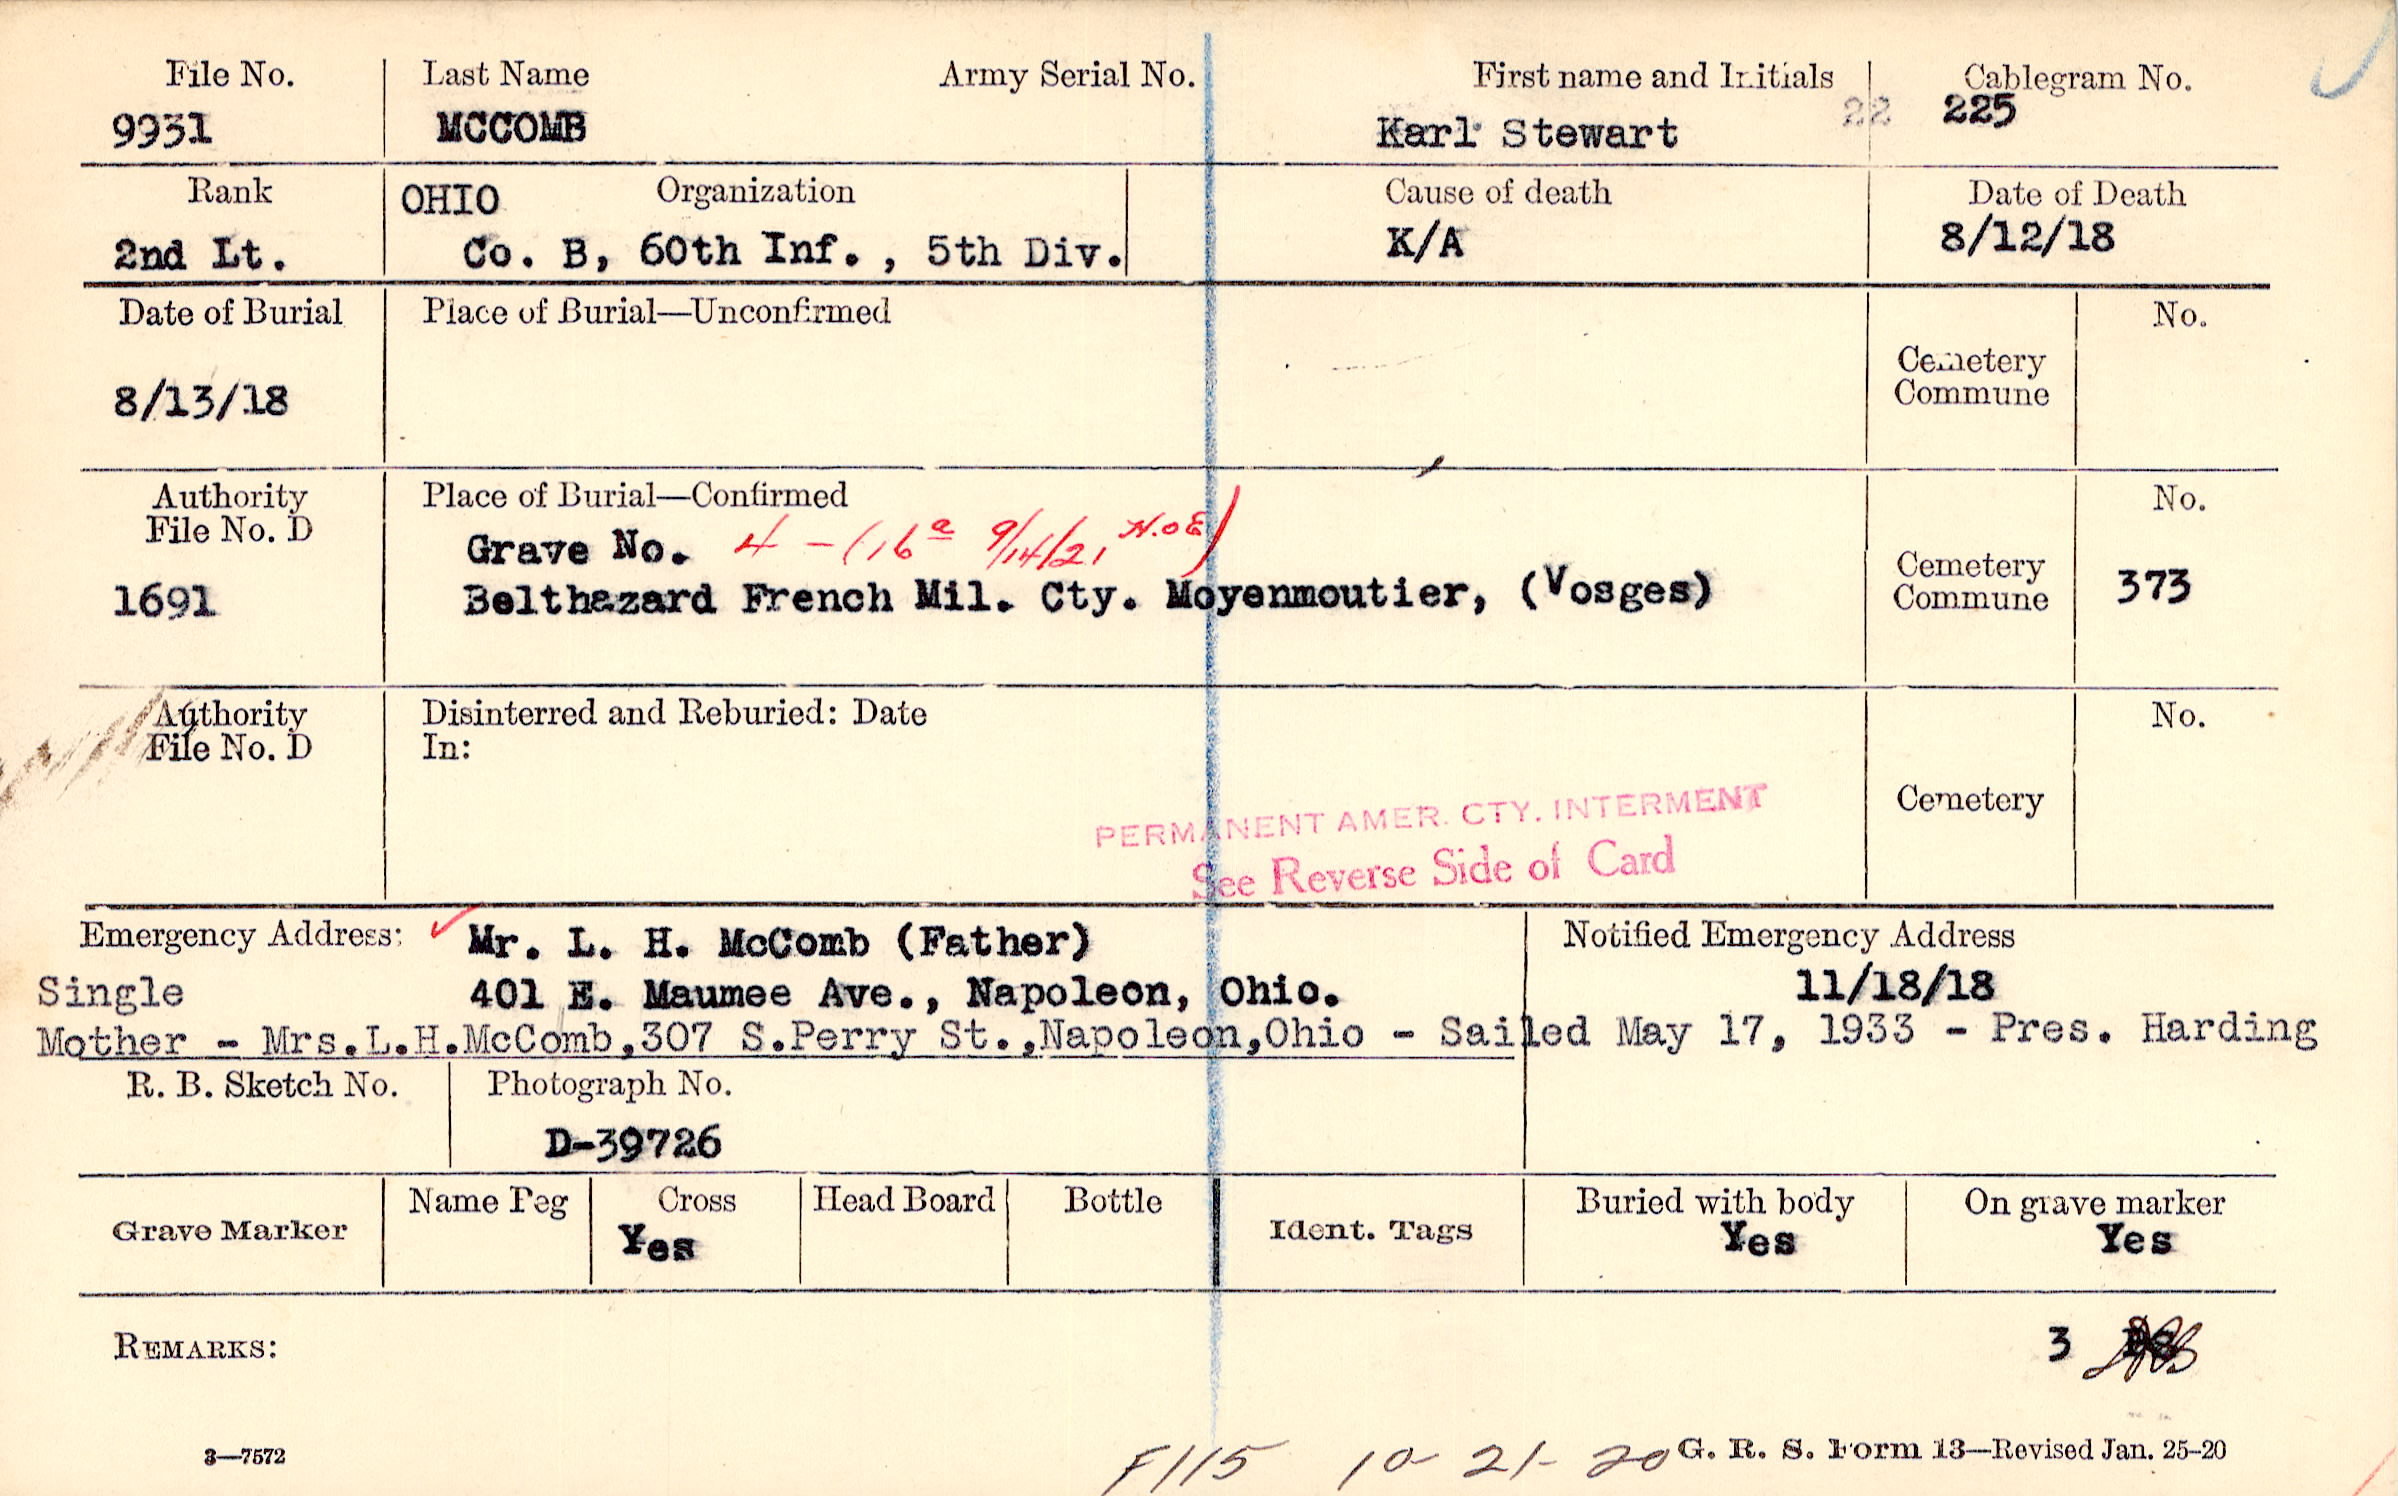 File No. Last Name Army Serial No. First name and Initials Cablegram No.
9931 MCCOMB Karl Stewart 22 225
Rank OHIO Organization Cause of death Date of Death
2nd Lt. Co. B, 60th Inf., 5th Div. K/A 8/12/18
Date of Burial Place of Burial—Unconfirmed No.
Cemetery
Commune
8/13/18
Authority Place of Burial—Confirmed No.
File No. D
Grave No. 4 – (16a 9/14/21, N.o.E)
Cemetery
Commune
1691 Belthazard French Mil. Cty. Moyenmoutier, (Vosges) 373
Authority Disinterred and Reburied: Date No.
File No. D In:
Cemetery
PERMANENT AMER. CTY. INTERMENT
See Reverse Side of Card
Emergency Address: Mr. L. H. McComb (Father) Notified Emergency Address
Single 401 E. Maumee Ave., Napoleon, Ohio. 11/18/18
Mother - Mrs.L.H.McComb,307 S.Perry St.,Napoleon,Ohio - Sailed May 17, 1933 - Pres. Harding
R. B. Sketch No. Photograph No.
D-39726
Grave Marker Name Peg Cross Head Board Bottle Ident. Tags Buried with body On grave marker
Yes Yes Yes
REMARKS: 3
3—7572 F115 10-21-20 G. R. S. Form 13—Revised Jan. 25-20